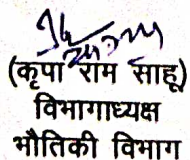 (कृपा राम साहू)
विभागाध्यक्ष
भौतिकी विभाग